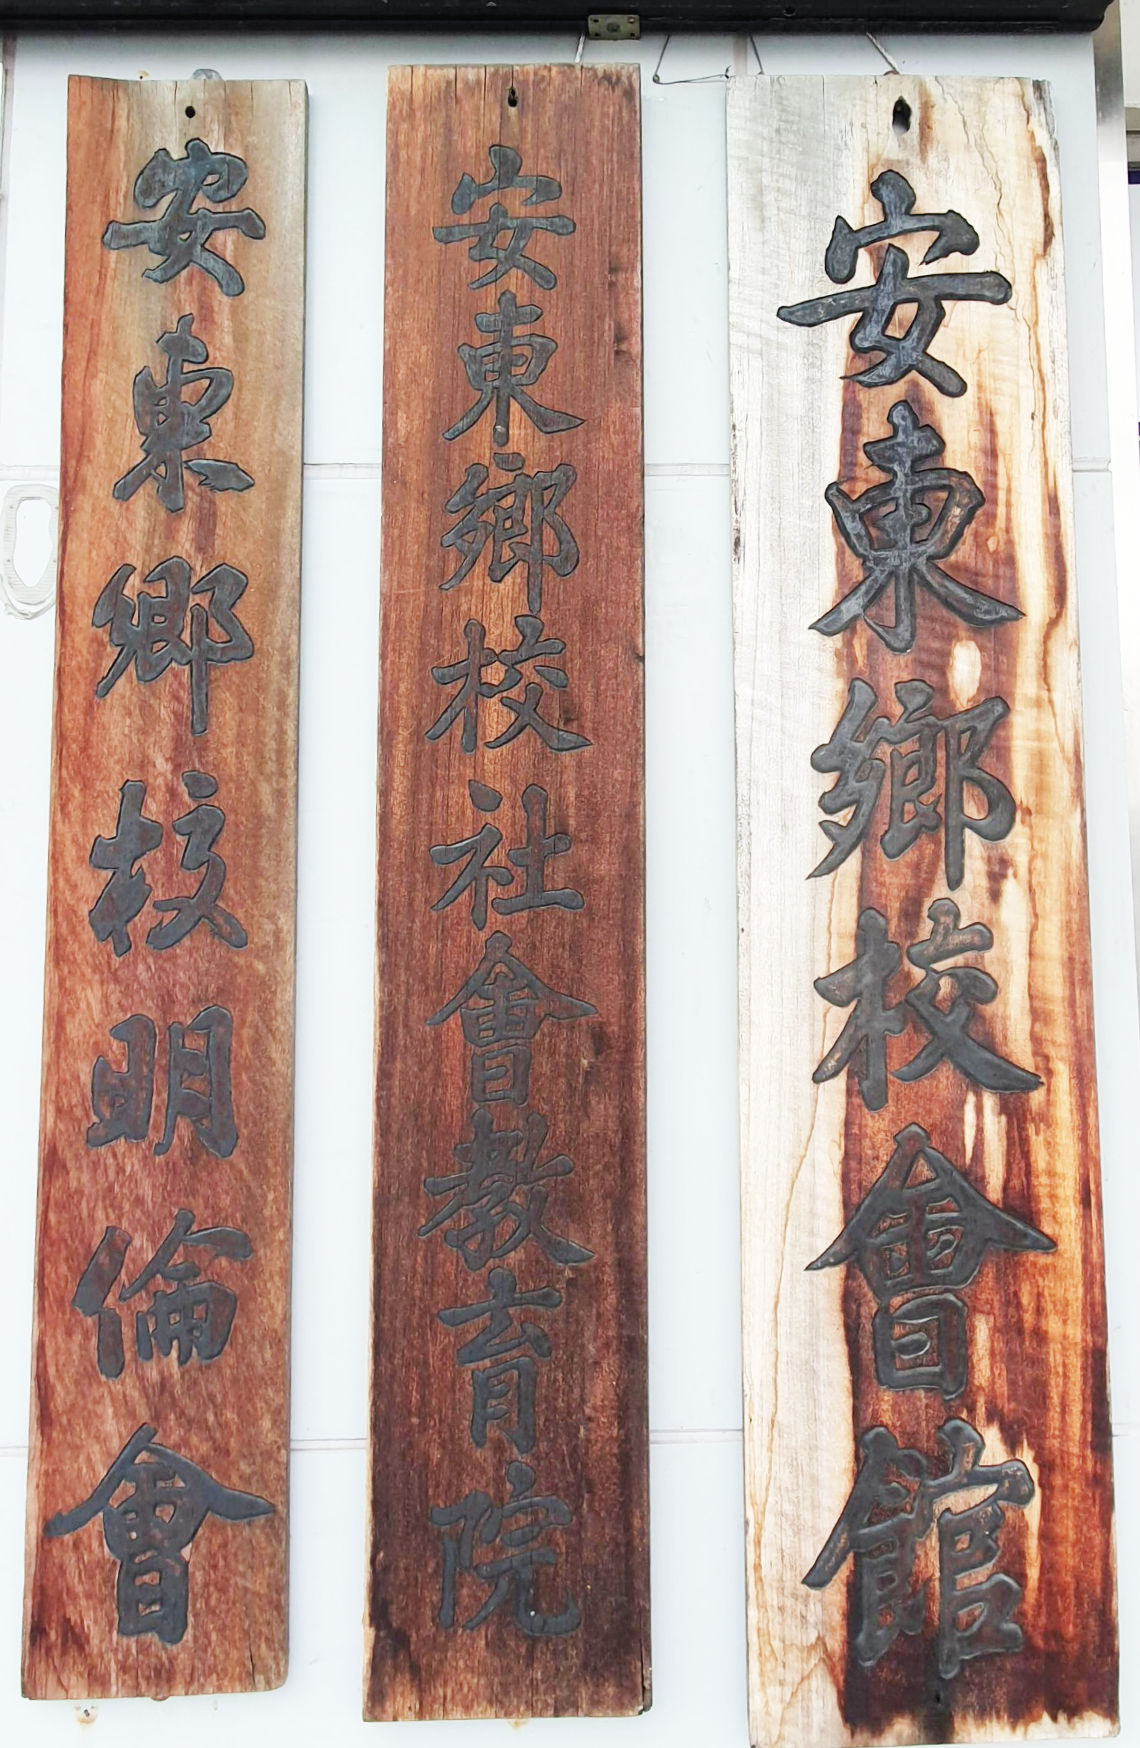 安東鄉校會館
安東鄉校社會敎育院
安東鄉校明倫會